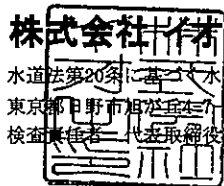 株式会社 イオ
水道法第20条に基づく水
東京都日野市旭が丘4-7
検査責任者 代表取締役